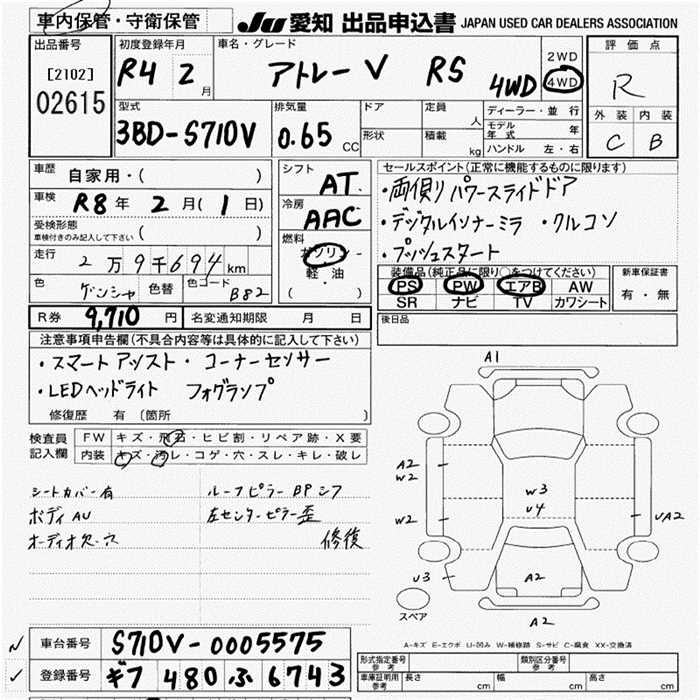 車内保管・守衛保管 JU 愛知 出品申込書 JAPAN USED CAR DEALERS ASSOCIATION
出品番号 初度登録年月 車名・グレード 2WD 評価点
[2102] R4 2月 アトレーV RS 4WD 4WD R
02615 型式 排気量 ドア 定員 人 ディーラー・並行 外装 内装
3BD-S710V 0.65 CC 形状 積載 kg モデル年式 年 C B
ハンドル 左・右
車歴 自家用・( ) シフト AT セールスポイント(正常に機能するものに限ります)
車検 R8年 2月(1日) 冷房 AAC ・両側りパワースライドドア
受検形態 車検付きのみ記入して下さい ( ) 燃料 ・デジタルインナーミラ ・クルコン
走行 2万9千694km ガソリン ・プッシュスタート
色 ゲンシャ 色替 色コード B82 軽油 ( ・ ) 装備品(純正品に限り○をつけてください) 新車保証書
PS PW エアB AW 有・無
SR ナビ TV カワシート
R券 9,710円 名変通知期限 月 日 後日品
注意事項申告欄(不具合内容等は具体的に記入して下さい)
・スマートアシスト・コーナーセンサー
・LEDヘッドライト フォグランプ
修復歴 有(箇所 )
検査員 FW キズ・飛石・ヒビ割・リペア跡・X要
記入欄 内装 キズ・汚レ・コゲ・穴・スレ・キレ・破レ
シートカバー有 ルーフピラーBPシフ
ボディAU 左センターピラー歪
オーディオ欠・穴 修復
A1
A2
W2
W3
U4
W2
UA2
U3
A2
スペア
A2
A-キズ E-エクボ U-凹み W-補修跡 S-サビ C-腐食 XX-交換済
車台番号 S710V-0005575
登録番号 ギフ 480 ふ 6743
形式指定番号 参考 類別区分番号 参考
車庫証明用 参考 長さ cm 幅 cm 高さ cm